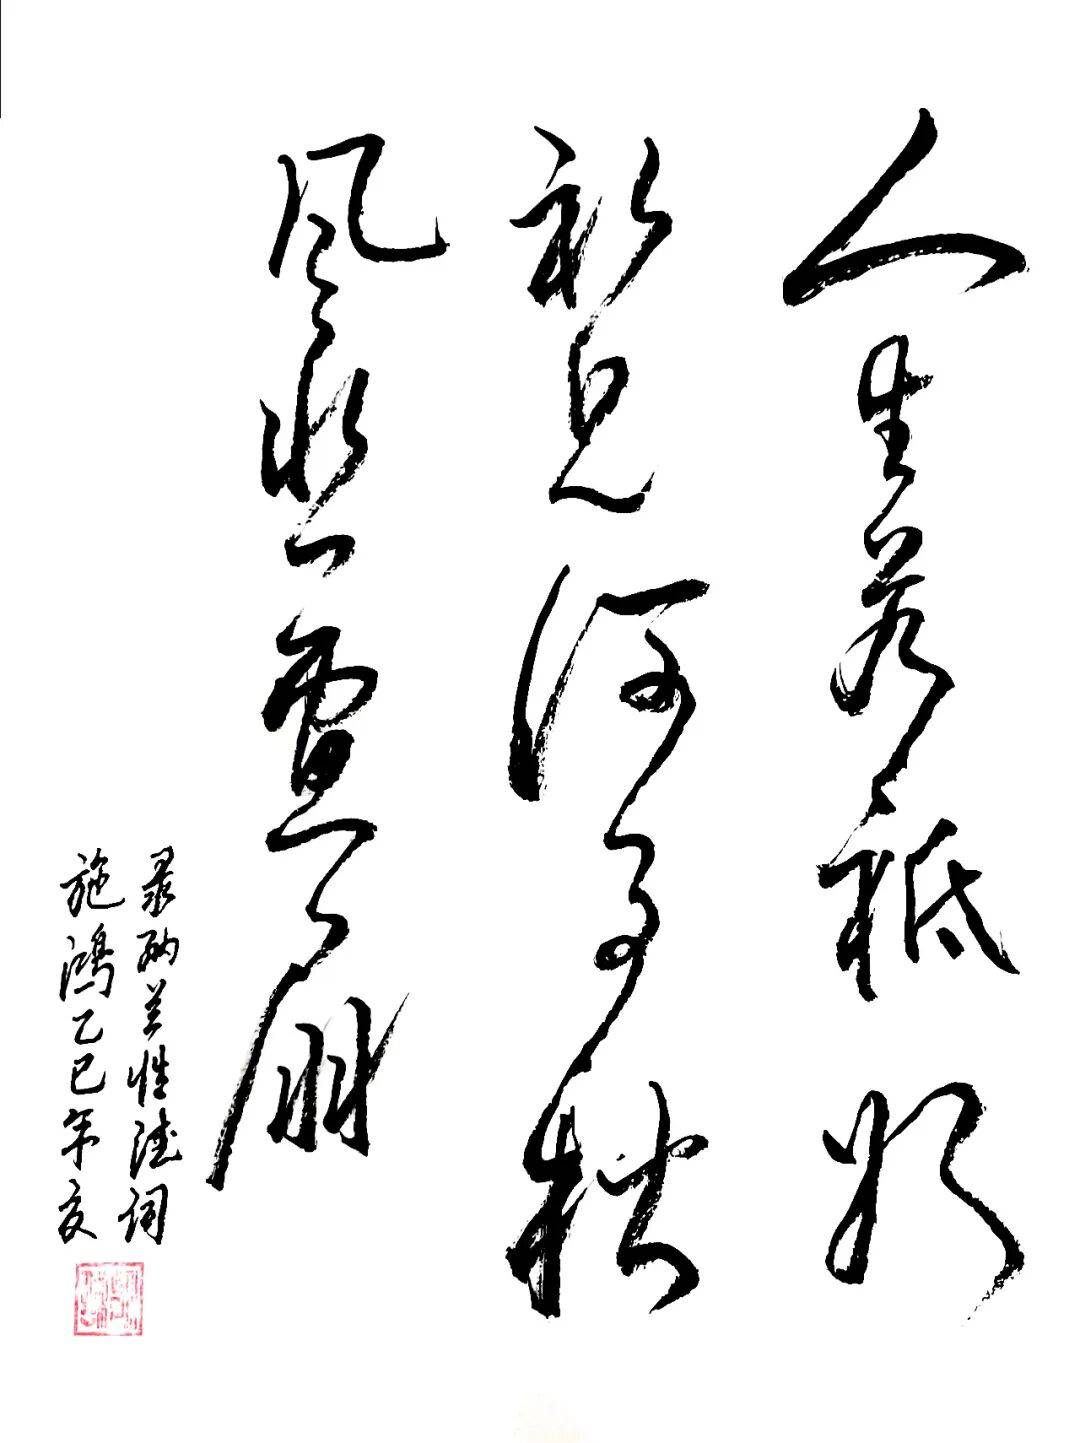 人生若祗如
初見何事秋
风悲畫扇
录纳兰性德词
施鸿乙巳年夏